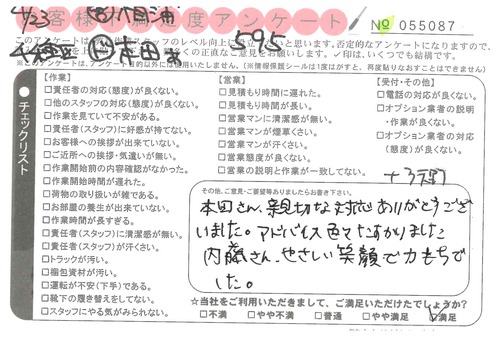 お客様満足度アンケート
№ 055087
4/23
本田
595
このアンケートは
スタッフのレベル向上
と思います。否定的なアンケートになりますので、
の正直なご意見をお願いします。✓印は、いくつでも結構です。
※このアンケートは、アンケート目的以外には使用いたしません。(※情報保護シールは1度はがすと、再度貼りなおすことはできません)
チェックリスト
【作業】
□責任者の対応(態度)が良くない。
□他のスタッフの対応(態度)が良くない。
□作業を見ていて不安がある。
□責任者(スタッフ)に好感が持てない。
□お客様への挨拶が出来ていない。
□ご近所への挨拶・気遣いが無い。
□作業開始前の内容確認がなかった。
□作業開始時間が遅れた。
□荷物の取り扱いが雑である。
□お部屋の養生が出来ていない。
□作業時間が長すぎる。
□責任者(スタッフ)に清潔感が無い。
□責任者(スタッフ)が汗くさい。
□トラックが汚い。
□梱包資材が汚い。
□運転が不安(下手)である。
□靴下の履き替えをしてない。
□スタッフにやる気がみられない。
【営業】
□見積もり時間に遅れた。
□見積もり時間が長い。
□営業マンに清潔感が無い。
□営業マンが煙草くさい。
□営業マンが汗くさい。
□営業態度が良くない。
□営業の説明と作業が一致してない。
【受付・その他】
□電話の対応が良くない。
□オプション業者の説明
・作業が良くない。
□オプション業者の対応
(態度)が良くない。
その他、ご意見・ご要望等ありましたらお書き下さい。
本田さん、親切な対応ありがとうござ
いました。アドバイス色々たすかりました
内藤さん、やさしい笑顔で力もちで
した。
☆当社をご利用いただきまして、ご満足いただけたでしょうか?
□不満 □やや不満 □普通 □やや満足 ☑満足